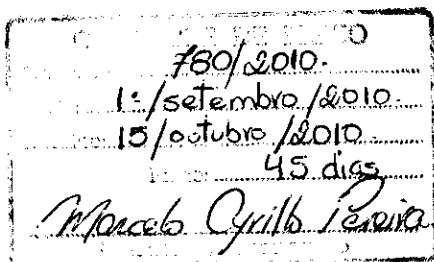 780/2010.
1º/setembro/2010.
15/outubro/2010.
45 dias
Marcelo Cyrillo Pereira